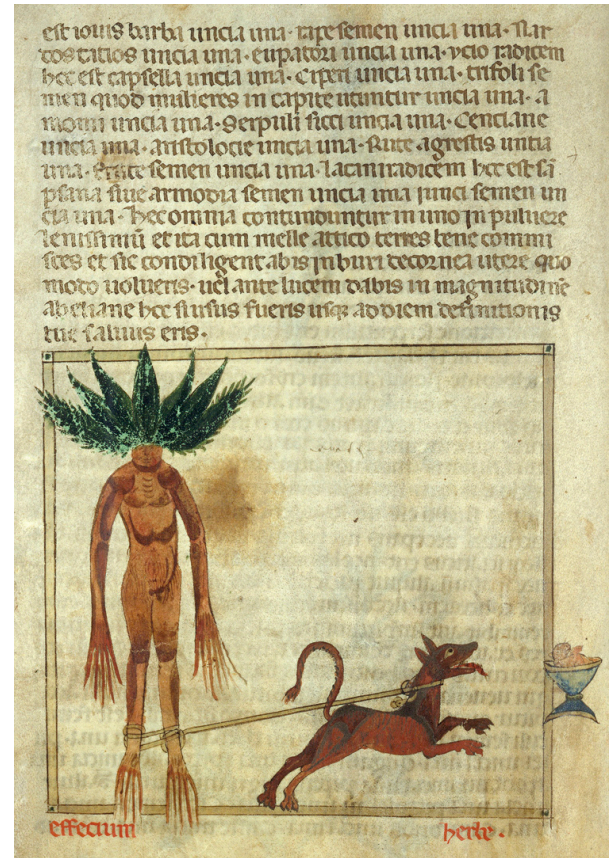 est iouis barba uncia una · rape semen uncia una · nar
dos catios uncia una · eupatori uncia una · ycio radicem
hec est capsella uncia una · Ciperi uncia una · trifoli se
men quod mulieres in capite utuntur uncia una · a
momi uncia una · Serpuli sicci uncia una · Cenciane
uncia una · aristolocie uncia una · Rute agrestis untia
una · semen uncia una · radicem hec est
siue armodia semen uncia una iunci semen un
cia una · hec omnia contunduntur in uno in puluere
lenissimū et ita cum melle attico teres bene commi
sces et sic condi ligent abis in buri de cornea utere quo
modo uolueris · uel ante lucem dabis in magnitudinē
abellane hec si usus fueris usq ad diem definitionis
tue saluus eris ·
effectum herbe ·